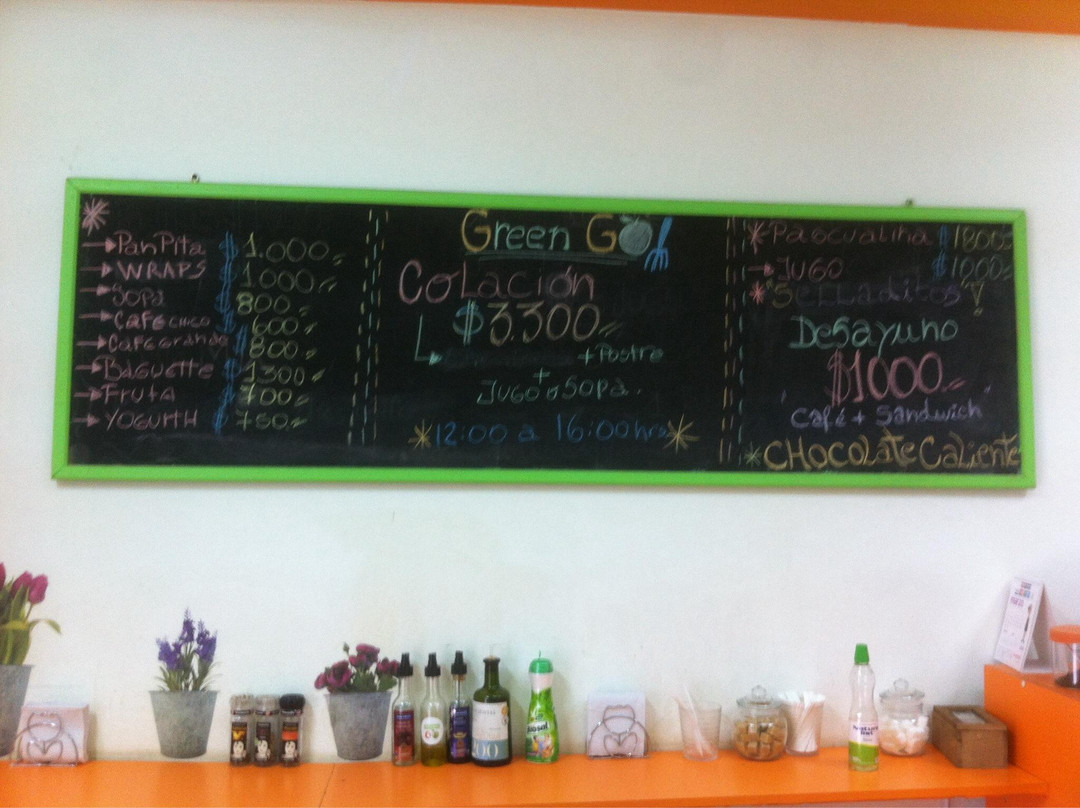 Pan Pita $ 1.000
WRAPS $ 1000
Sopa $ 800
Café chico $ 600
Café Grande $ 800
Baguette $ 1300
Fruta $ 700
YOGURTH $ 750
Green Go!
Colación
$3.300
+Postre
+
Jugo o Sopa.
12:00 a 16:00 hrs
Pascualina $ 1800
JUGO $ 1000
Selladitos
Desayuno
$1000
Café + Sandwich
CHOCOLATE Caliente